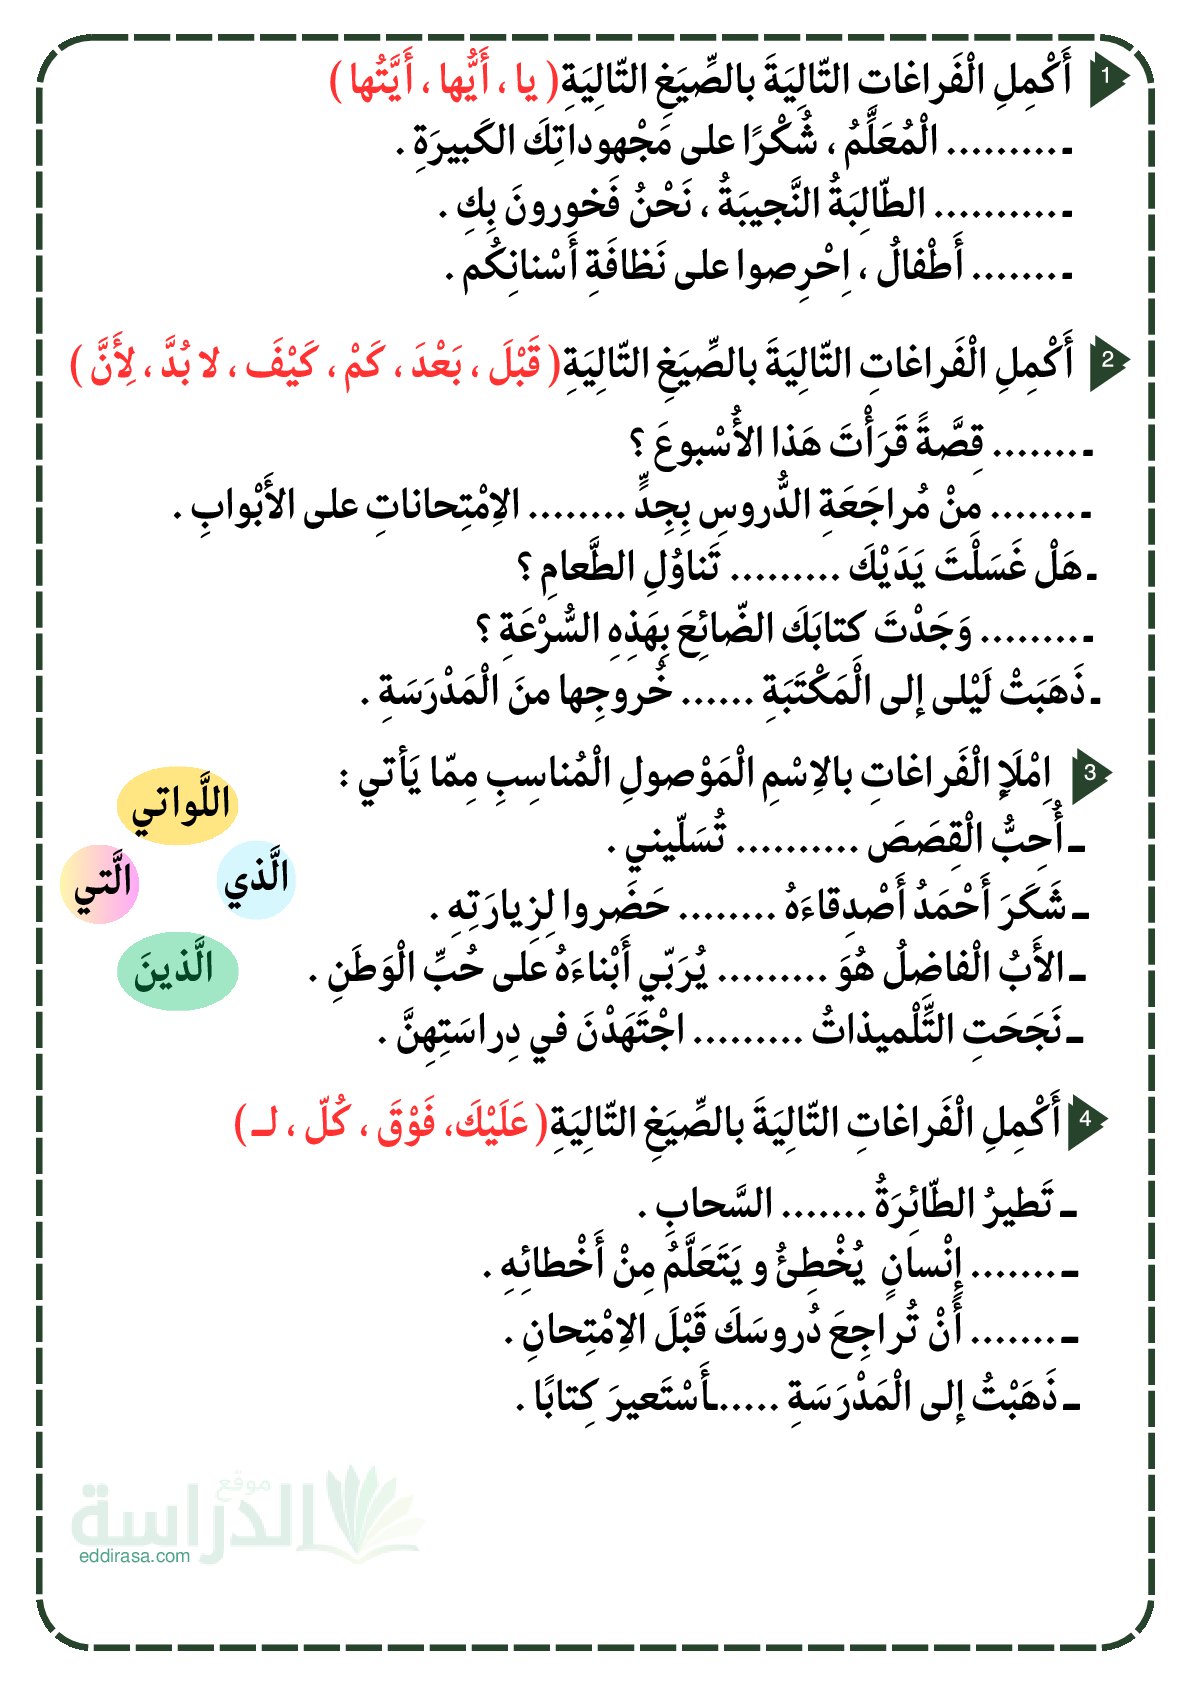 1 أَكْمِلِ الْفَراغات التّالِيَةَ بالصِّيَغِ التّالِيَةِ( يا ، أَيُّها ، أَيَّتُها )
ـ ......... الْمُعَلِّمُ ، شُكْرًا على مَجْهوداتِكَ الكَبيرَةِ .
ـ .......... الطّالِبَةُ النَّجيبَةُ ، نَحْنُ فَخورونَ بِكِ .
ـ ....... أَطْفالُ ، اِحْرِصوا على نَظافَةِ أَسْنانِكُم .
2 أَكْمِلِ الْفَراغاتِ التّالِيَةَ بالصِّيَغِ التّالِيَةِ( قَبْلَ ، بَعْدَ ، كَمْ ، كَيْفَ ، لا بُدَّ ، لِأَنَّ )
ـ ....... قِصَّةً قَرَأْتَ هَذا الأُسْبوعَ ؟
ـ ....... مِنْ مُراجَعَةِ الدُّروسِ بِجِدٍّ ........ الاِمْتِحاناتِ على الأَبْوابِ .
ـ هَلْ غَسَلْتَ يَدَيْكَ ......... تَناوُلِ الطَّعامِ ؟
ـ ........ وَجَدْتَ كتابَكَ الضّائِعَ بِهَذِهِ السُّرْعَةِ ؟
ـ ذَهَبَتْ لَيْلى إلى الْمَكْتَبَةِ ...... خُروجِها منَ الْمَدْرَسَةِ .
3 اِمْلَإِ الْفَراغاتِ بالاِسْمِ الْمَوْصولِ الْمُناسِبِ مِمّا يَأتي :
اللَّواتي
ـ أُحِبُّ الْقِصَصَ .......... تُسَلّيني .
الَّذي
الَّتي
ـ شَكَرَ أَحْمَدُ أَصْدِقاءَهُ ........ حَضَروا لِزِيارَتِهِ .
ـ الأَبُ الْفاضِلُ هُوَ ......... يُرَبّي أَبْناءَهُ على حُبِّ الْوَطَنِ .
الَّذينَ
ـ نَجَحَتِ التِّلْميذاتُ ......... اجْتَهَدْنَ في دِراسَتِهِنَّ .
4 أَكْمِلِ الْفَراغاتِ التّالِيَةَ بالصِّيَغِ التّالِيَةِ( عَلَيْكَ، فَوْقَ ، كُلّ ، لـ )
ـ تَطيرُ الطّائِرَةُ ....... السَّحابِ .
ـ ....... إِنْسانٍ يُخْطِئُ و يَتَعَلَّمُ مِنْ أَخْطائِهِ .
ـ ....... أَنْ تُراجِعَ دُروسَكَ قَبْلَ الاِمْتِحانِ .
ـ ذَهَبْتُ إلى الْمَدْرَسَةِ .....ـأَسْتَعيرَ كِتابًا .
موقع
الدراسة
eddirasa.com